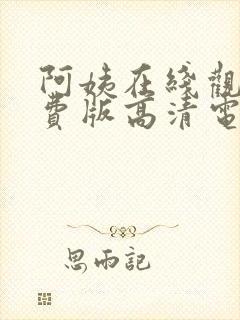 阿姨在綫觀
費版高清電
思雨記